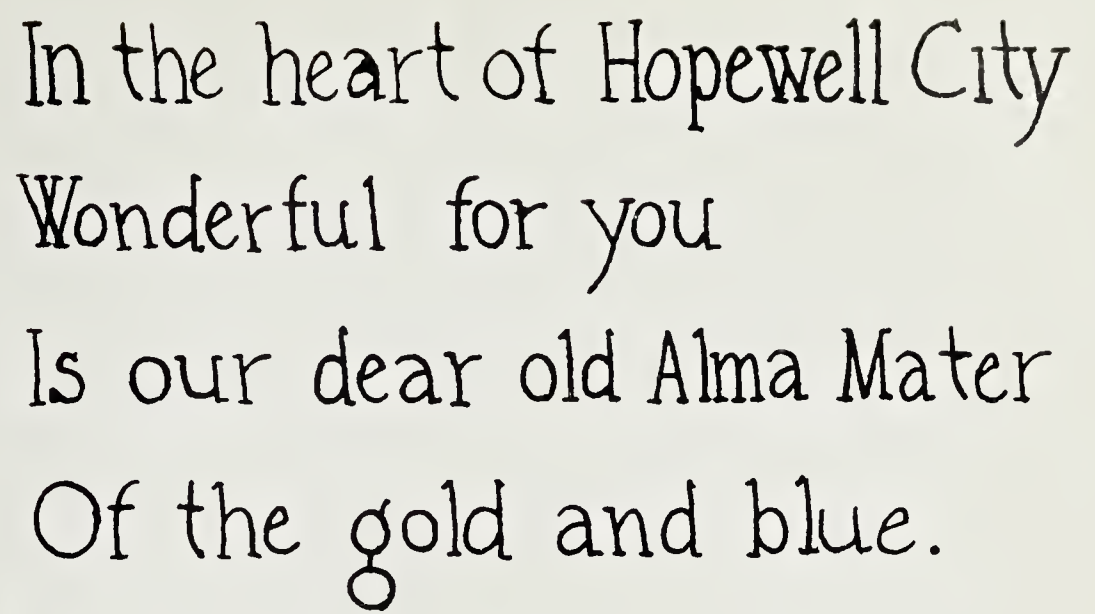 In the heart of Hopewell City
Wonderful for you
Is our dear old Alma Mater
Of the gold and blue.